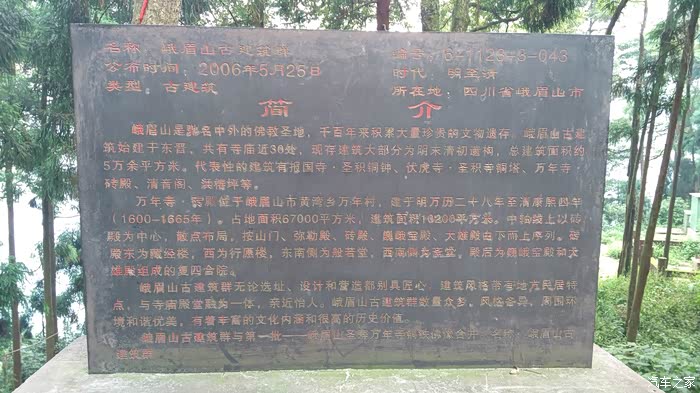 名称：峨眉山古建筑群 编号：6-1123-3-043
公布时间：2006年5月25日 时代：明至清
类型：古建筑 所在地：四川省峨眉山市
简 介
峨眉山是驰名中外的佛教圣地，千百年来积累大量珍贵的文物遗存。峨眉山古建
筑始建于东晋，共有寺庙近30处，现存建筑大部分为明末清初遗构，总建筑面积约
5万余平方米。代表性的建筑有报国寺·圣积铜钟、伏虎寺·圣积寺铜塔、万年寺·
砖殿、清音阁、洪椿坪等。
万年寺·砖殿位于峨眉山市黄湾乡万年村，建于明万历二十八年至清康熙四年
（1600-1665年）。占地面积67000平方米，建筑面积10200平方米。中轴线上以砖
殿为中心，散点布局，按山门、弥勒殿、砖殿、巍峨宝殿、大雄殿由下而上序列。砖
殿东为藏经楼，西为行愿楼，东南侧为般若堂，西南侧为斋堂。殿后为巍峨宝殿和大
雄殿组成的四合院。
峨眉山古建筑群无论选址、设计和营造都别具匠心，建筑风格带着地方民居特
点，与寺庙殿堂融为一体，亲近怡人。峨眉山古建筑群数量众多，风格各异，周围环
境和谐优美，有着丰富的文化内涵和很高的历史价值。
峨眉山古建筑群与第一批——峨眉山圣寿万年寺铜铁佛像合并，名称：峨眉山古
建筑群
汽车之家